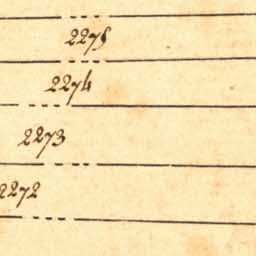 2275
2274
2273
2272